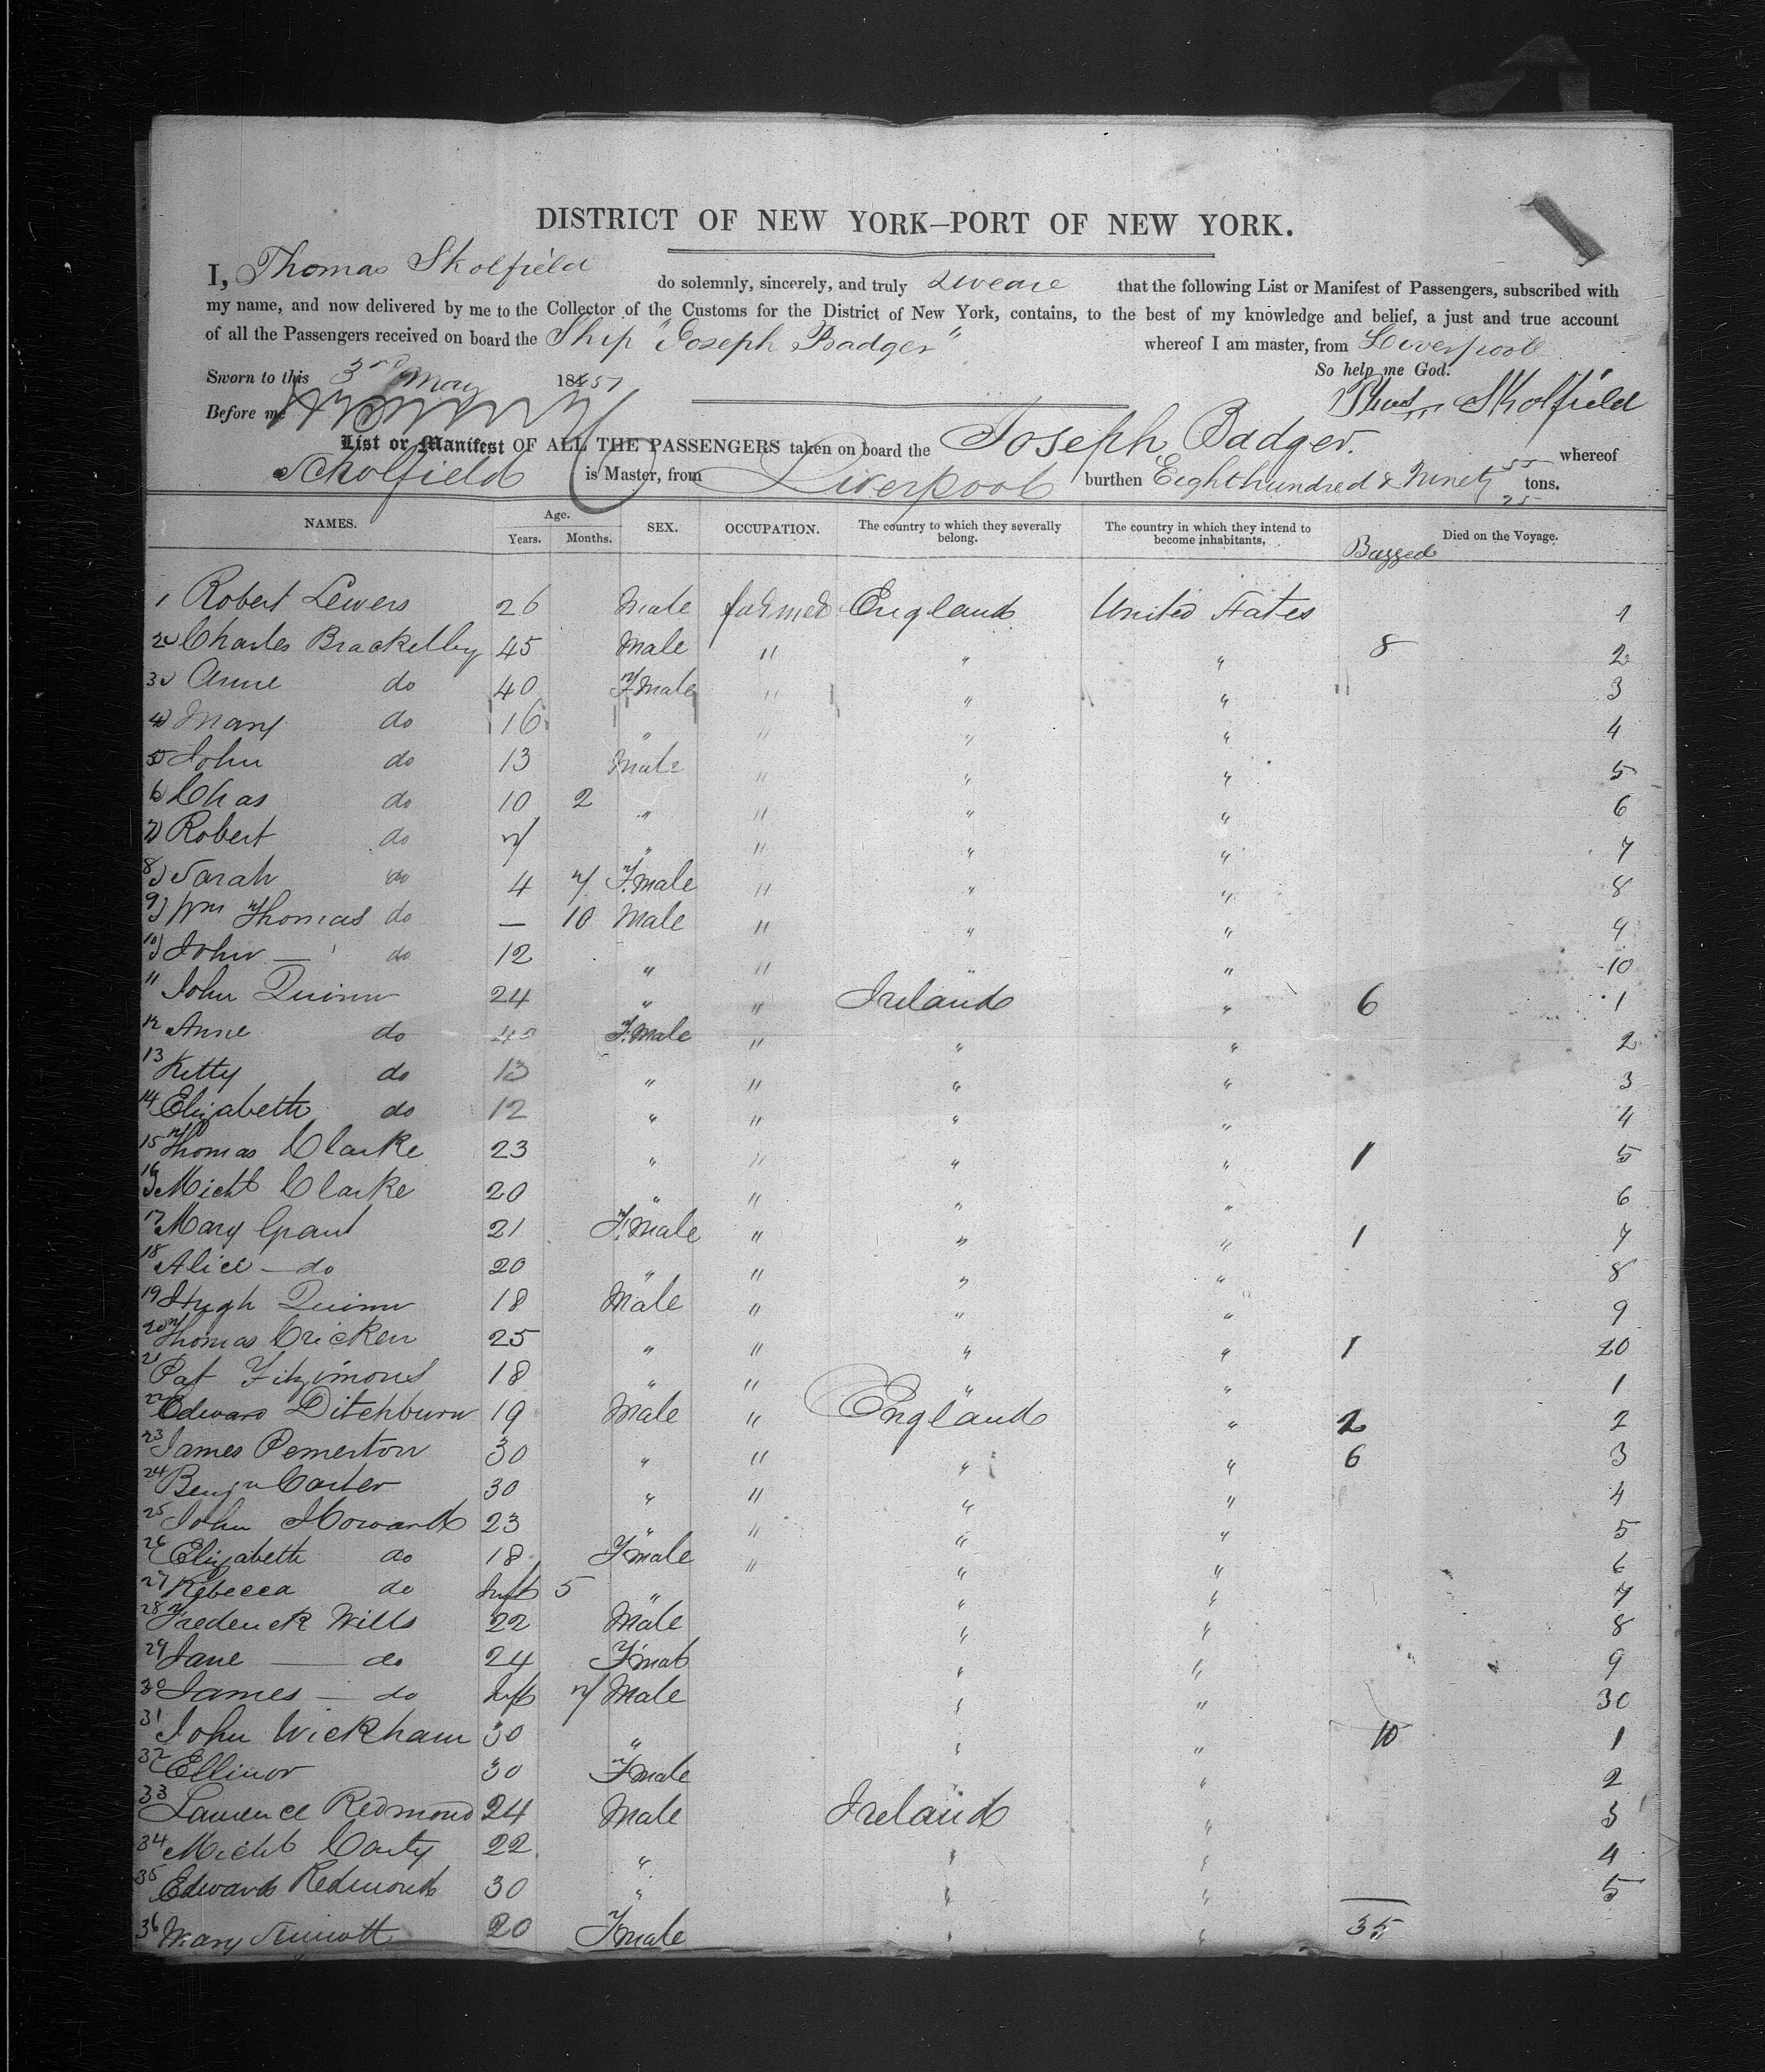 DISTRICT OF NEW YORK—PORT OF NEW YORK.
I, Thomas Skolfield do solemnly, sincerely, and truly swear that the following List or Manifest of Passengers, subscribed with
my name, and now delivered by me to the Collector of the Customs for the District of New York, contains, to the best of my knowledge and belief, a just and true account
of all the Passengers received on board the Ship "Joseph Badger" whereof I am master, from Liverpool
Sworn to this 3rd May 1851 So help me God.
Before me Skolfield
List or Manifest OF ALL THE PASSENGERS taken on board the Joseph Badger. whereof
Scholfield is Master, from Liverpool burthen Eight hundred & Ninety 55 25 tons.
NAMES. Age. Years. Months. SEX. OCCUPATION. The country to which they severally belong. The country in which they intend to become inhabitants. Died on the Voyage.
1 Robert Lewers 26 Male farmer England United States 1
2 Charles Brackelby 45 Male " " " 8 2
3 Anne do 40 Fmale " " " 3
4 Mary do 16 " " " " 4
5 John do 13 Male " " " 5
6 Chas do 10 2 " " " " 6
7 Robert do 7 " " " " 7
8 Sarah do 4 7 F.male " " " 8
9 Wm Thomas do — 10 Male " " " 9
10 John — do 12 " " " " 10
11 John Quinn 24 " " Ireland " 6 1
12 Anne do F.male " " " 2
13 Kitty do 13 " " " " 3
14 Elizabeth do 12 " " " " 4
15 Thomas Clarke 23 " " " " 1 5
16 Michl Clarke 20 " " " " 6
17 Mary Grant 21 F.male " " " 1 7
18 Alice — do 20 " " " " 8
19 Hugh Quinn 18 Male " " " 9
20 Thomas Cricken 25 " " " " 1 20
21 Pat Fitzimons 18 " " " " 1
22 Edward Ditchburn 19 Male " England " 2 2
23 James Pemerton 30 " " " " 6 3
24 Benjn Carter 30 " " " " 4
25 John Howard 23 " " " " 5
26 Elizabeth do 18 Fmale " " " 6
27 Rebecca do Inft 5 " " " 7
28 Frederick Wills 22 Male " " 8
29 Jane — do 24 Fmal " " 9
30 James — do Inft 7 Male " " 30
31 John Wickham 30 " " " 10 1
32 Ellinor 30 Fmale " " 2
33 Laurence Redmond 24 Male Ireland " 3
34 Michl Carty 22 " " " 4
35 Edward Redmond 30 " " " 5
36 Mary Sinnott 20 Fmale " " 35